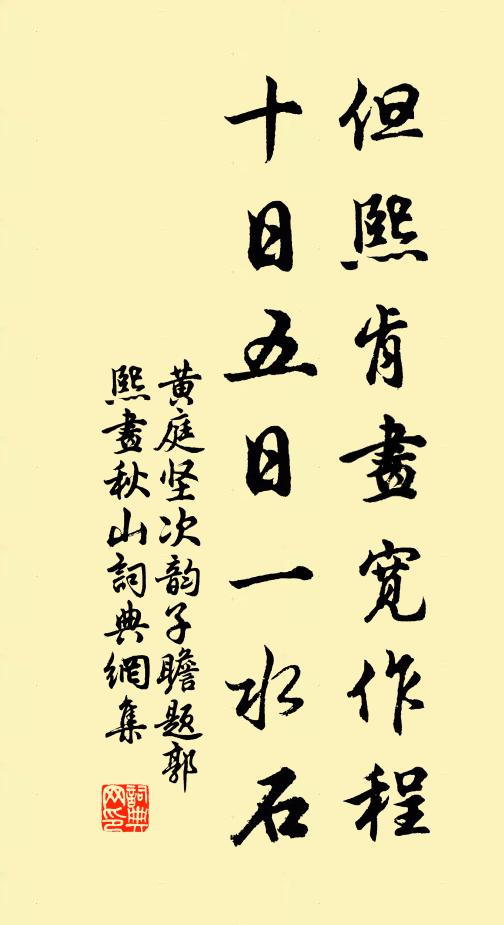 但熙肯畫寬作程
十日五日一水石
黄庭坚次韵子瞻题郭
熙畫秋山詞典網集
詞典
网印